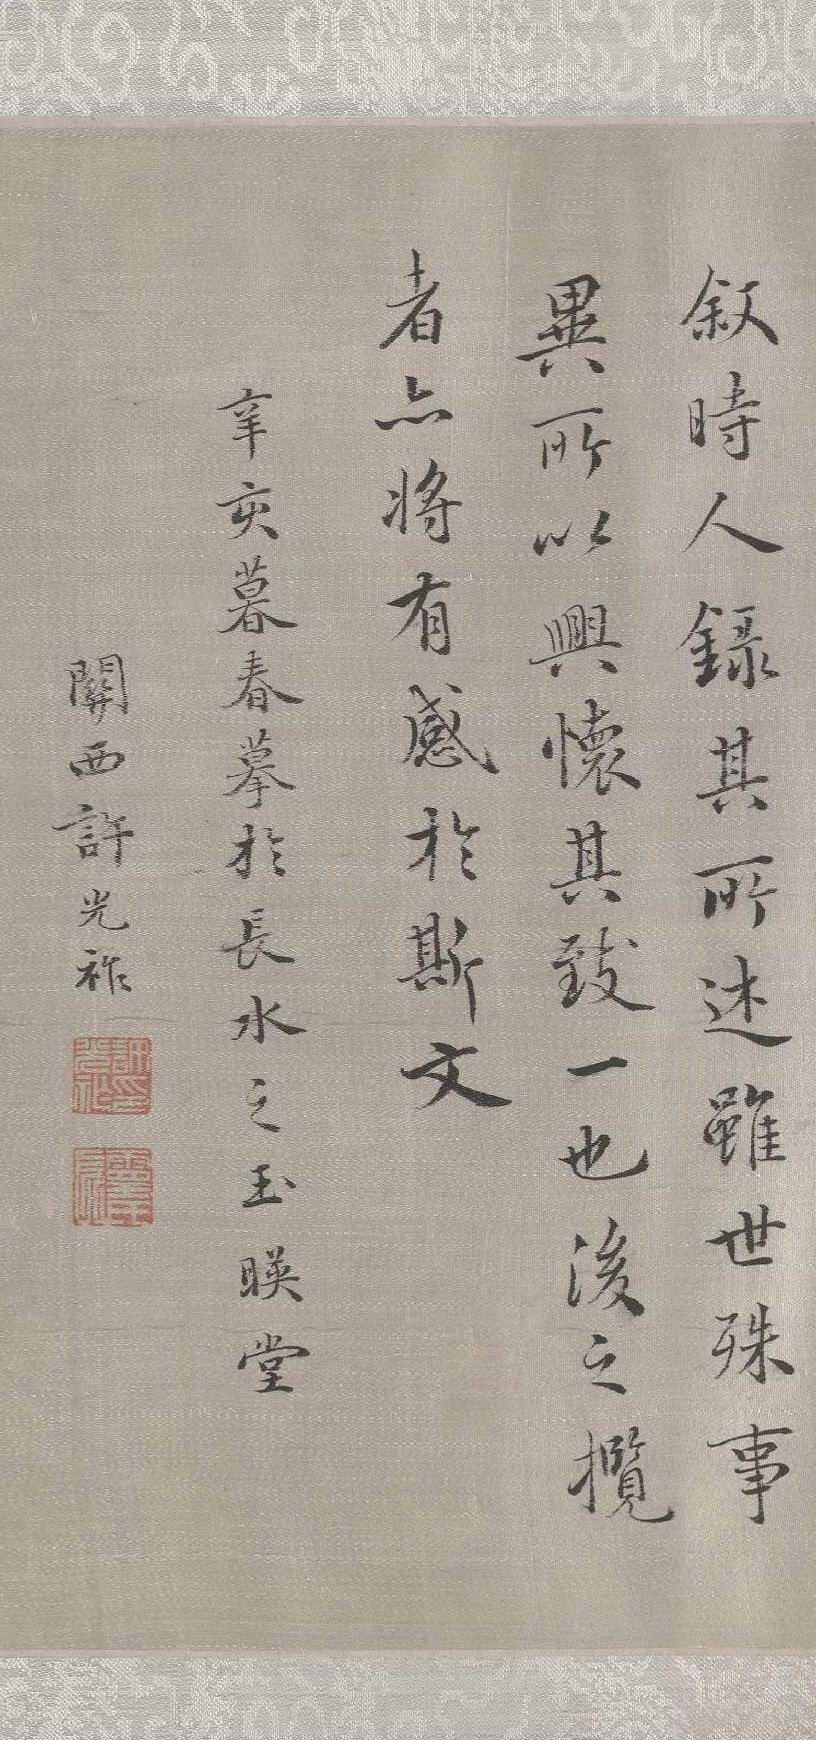 叙時人錄其所述雖世殊事
異所以興懷其致一也後之攬
者亦將有感於斯文
辛亥暮春摹於長水之玉暎堂
關西許光祚